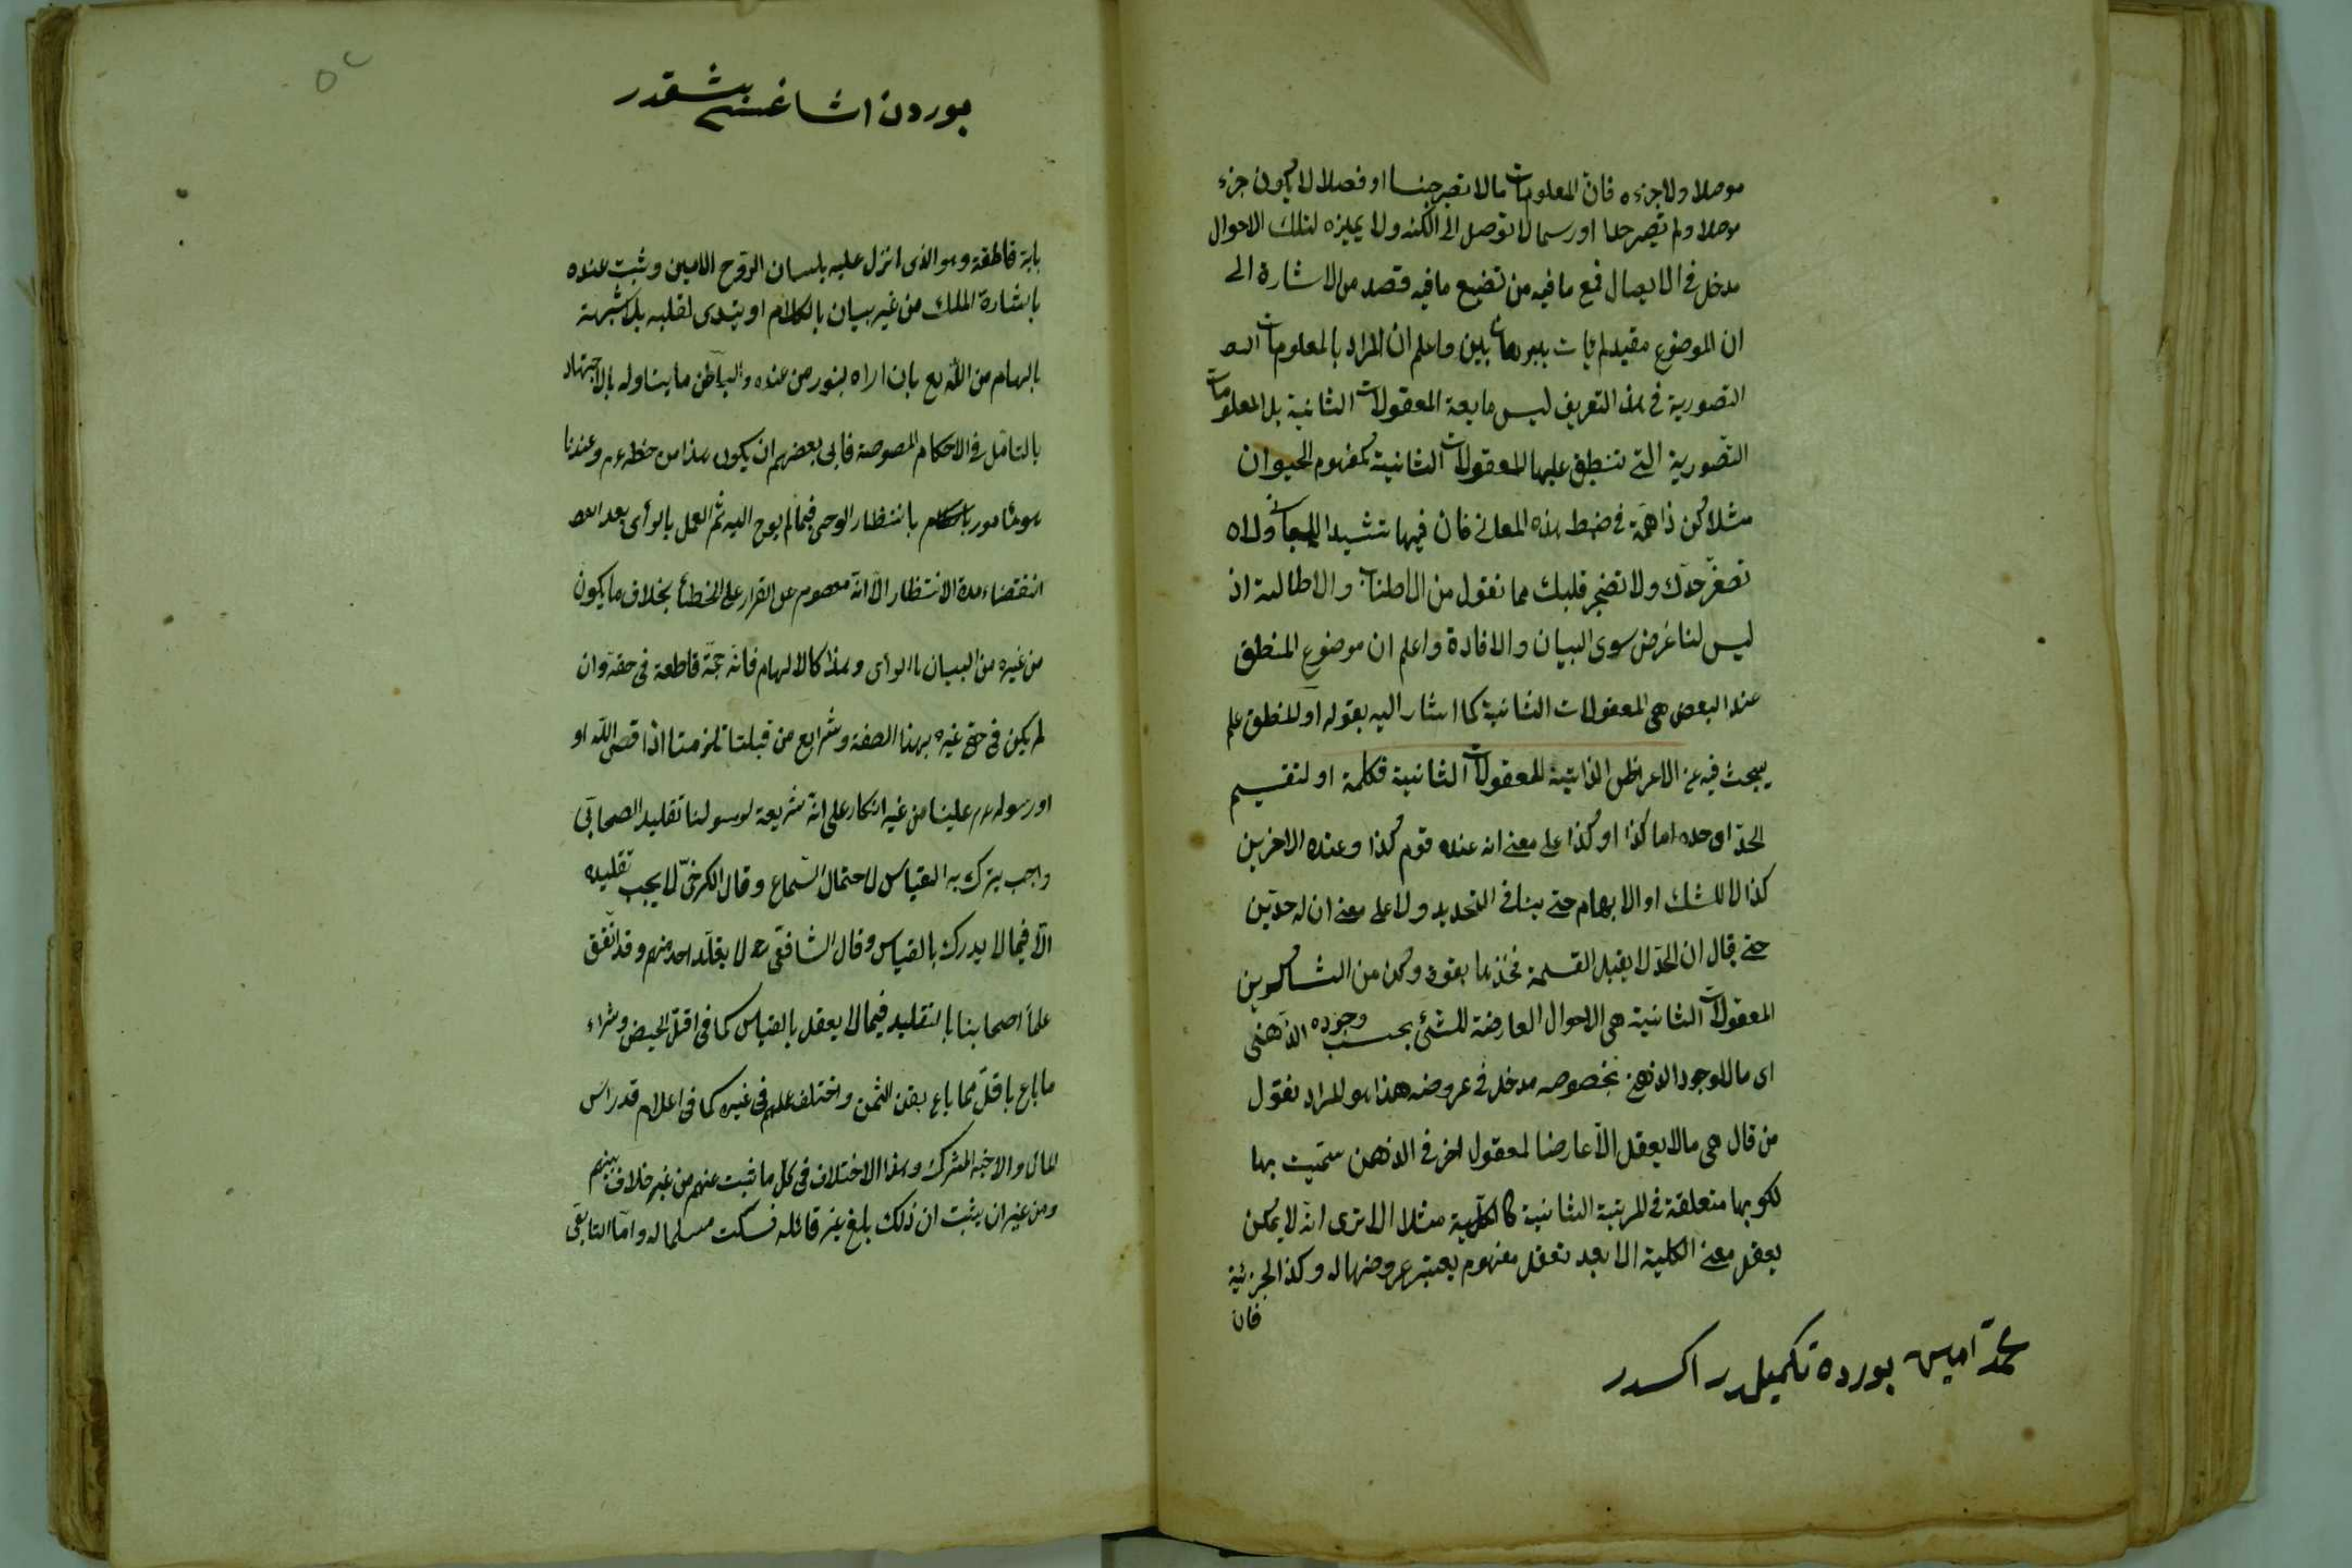 موصلا ولا جزءه فان المعلومات ما لا تصير جنسا او فصلا لا يكون جزء
موصلا ولم تصير حدا او رسما لا توصل الى الكنه ولا يميزه لتلك الاحوال
مدخل في الايصال فمع ما فيه من تضيع ما فيه قصد من الاشارة الى
ان الموضوع مقيد لم يأت ببرهان بين واعلم ان المراد بالمعلومات
التصورية في هذا التعريف ليس ما يعم المعقولات الثانية بل المعلومات
التصورية التي تنطبق عليها المعقولات الثانية كمفهوم الحيوان
مثلا كن ذا همة في ضبط هذه المعاني فان فيها تشييد المباني ولا
تصغر خدك ولا تضجر قلبك مما نقول من الاطناب والاطالة اذ
ليس لنا غرض سوى البيان والافادة واعلم ان موضوع المنطق
عند البعض هي المعقولات الثانية كما اشار اليه بقوله او المنطق علم
يبحث فيه عن الاعراض الذاتية للمعقولات الثانية فكلمة او لتقسيم
الحد اى حده اما كذا او كذا على معنى انه عند قوم كذا وعند الاخرين
كذا لا للشك او الابهام حتى ينافى التحديد ولا على معنى ان له حدين
حتى يقال ان الحد لا يقبل القسمة فخذها بقوة وكن من الشاكرين
المعقولات الثانية هى الاحوال العارضة للشئ بحسب وجوده الذهنى
اى ما للوجود الذهنى بخصوصه مدخل في عروضه هذا هو المراد بقول
من قال هى ما لا يعقل الا عارضا لمعقول اخر في الذهن سميت بها
لكونها متعلقة في المرتبة الثانية كالكلية مثلا الا ترى انه لا يمكن
يعقل معنى الكلية الا بعد تعقل مفهوم يعتبر عروضها له وكذا الجزئية
فان
محمد امين بورده تكميلدر اكسدر
بوردن اشاغيسى بشقه در
باية قاطعة وهو الذى انزل عليه بلسان الروح الامين وثبت عنده
باشارة الملك من غير بيان بالكلام او يتبدى لقلبه بلا شبهة
بالهام من الله تع بان اراه بنور من عنده والباطن ما يتناوله بالاجتهاد
بالتامل في الاحكام المنصوصة فابى بعضهم ان يكون هذا من حظه عم وعندنا
هو مأمور بانتظار الوحى فيما لم يوح اليه ثم العمل بالرأى بعد
انقضاء مدة الانتظار الا انه معصوم عن القرار على الخطأ بخلاف ما يكون
من غيره من البيان بالرأى وهذا كالالهام فانه حجة قاطعة في حقه وان
لم يكن في حق غيره بهذا الصفة وشرايع من قبلنا تلزمنا اذا قص الله او
او رسوله عم علينا من غير انكار على انه شريعة لرسولنا تقليد الصحابى
واجب يترك به القياس لاحتمال السماع وقال الكرخى لا يجب تقليده
الا فيما لا يدرك بالقياس وقال الشافعى رحمه لا يقلد احد منهم وقد اتفق
علماء اصحابنا بالتقليد فيما لا يعقل بالقياس كما في اقل الحيض وشراء
ما باع باقل مما باع بنقد الثمن واختلف عملهم في غيره كما في اعلام قدر رأس
المال والاجير المشترك وهذا الاختلاف في كل ما ثبت عنهم من غير خلاف بينهم
ومن غير ان يثبت ان ذلك بلغ غير قائله فسكت مسلما له واما التابعى